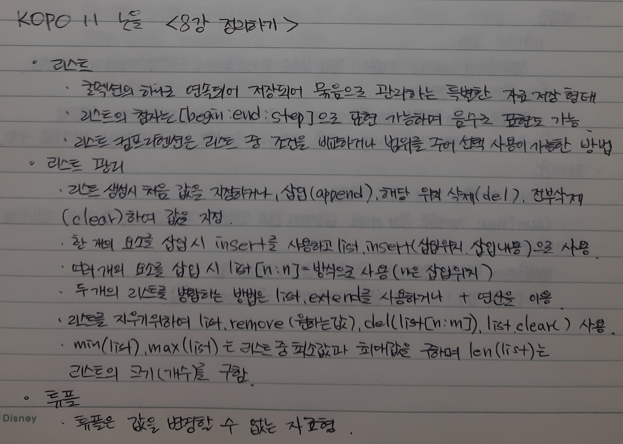 KOPO 11 노을 <8강 정리하기>
◦ 리스트
· 콜렉션의 하나로 연속되어 저장되어 묶음으로 관리하는 특별한 자료 저장 형태
· 리스트의 첨자는 [begin:end:step]으로 표현 가능하며 음수로 표현도 가능.
· 리스트 컴프리헨션은 리스트 중 조건을 비교하거나 범위를 주어 선택 사용이 가능한 방법
◦ 리스트 관리
· 리스트 생성시 처음 값을 지정하거나, 삽입(append), 해당 위치 삭제(del), 전부삭제
(clear)하여 값을 지정.
· 한 개의 요소를 삽입 시 insert를 사용하고 list.insert(삽입위치, 삽입내용)으로 사용.
· 여러개의 요소를 삽입 시 list[n:n]=방식으로 사용(n은 삽입위치)
· 두개의 리스트를 병합하는 방법은 list.extend를 사용하거나 + 연산을 이용
· 리스트를 지우기위하여 list.remove(원하는값), del(list[n:m]), list.clear() 사용.
· min(list), max(list)는 리스트 중 최소값과 최대값을 구하며 len(list)는
리스트의 크기(개수)를 구함.
◦ 튜플
· 튜플은 값을 변경할 수 없는 자료형.
Disney